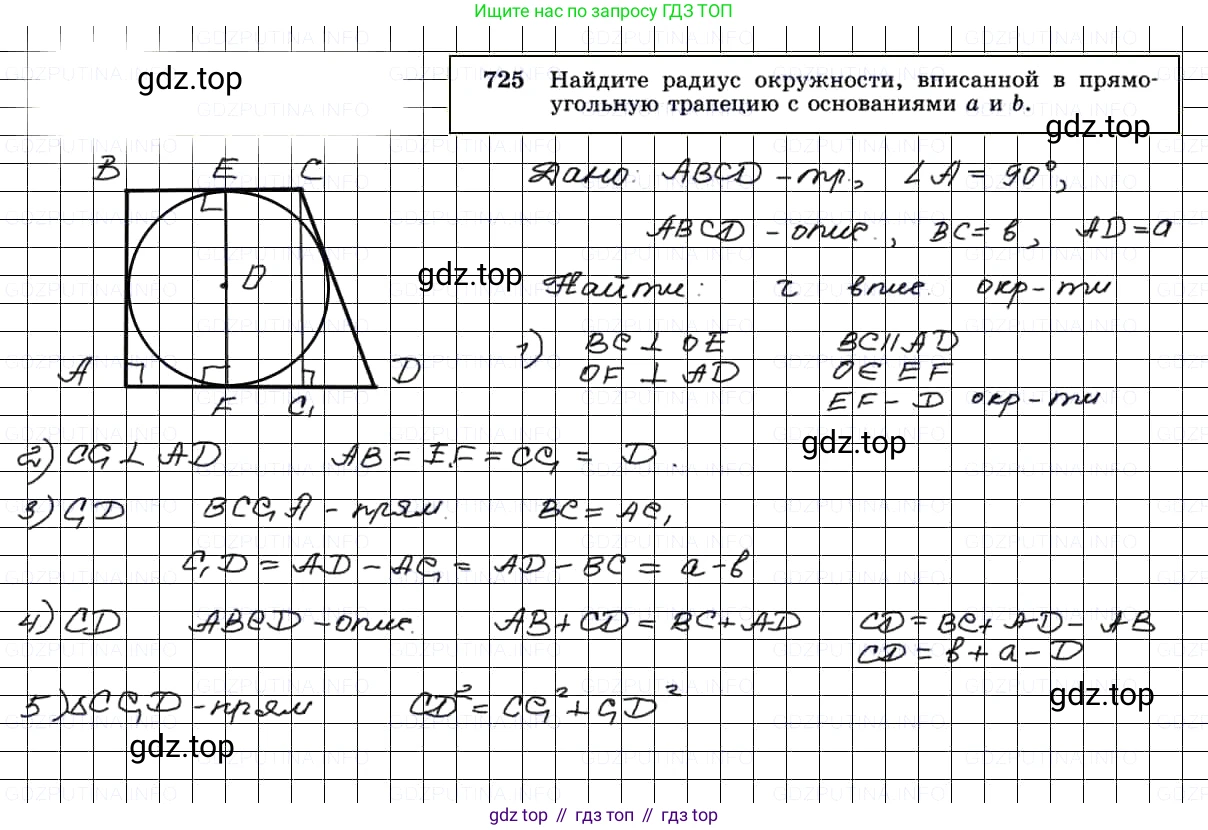 Ищите нас по запросу ГДЗ ТОП
gdz.top
725 Найдите радиус окружности, вписанной в прямо-
угольную трапецию с основаниями a и b.
gdz.top
B E C
Дано: ABCD - тр., ∠A = 90°,
ABCD - опис., BC = в, AD = a
O
gdz.top
Найти: r впис. окр-ти
1) BC ⊥ OE BC || AD
A D
OF ⊥ AD O ∈ EF
F C₁
EF - D окр-ти
gdz.top
2) CC₁ ⊥ AD AB = EF = CC₁ = D
3) C₁D BCC₁A - прям. BC = AC₁
C₁D = AD - AC₁ = AD - BC = a - в
4) CD ABCD - опис. AB + CD = BC + AD CD = BC + AD - AB
CD = в + a - D
gdz.top
5) ΔCC₁D - прям CD² = CC₁² + C₁D²
gdz.top
gdz top // гдз топ // гдз top
GDZPUTINA.INFO